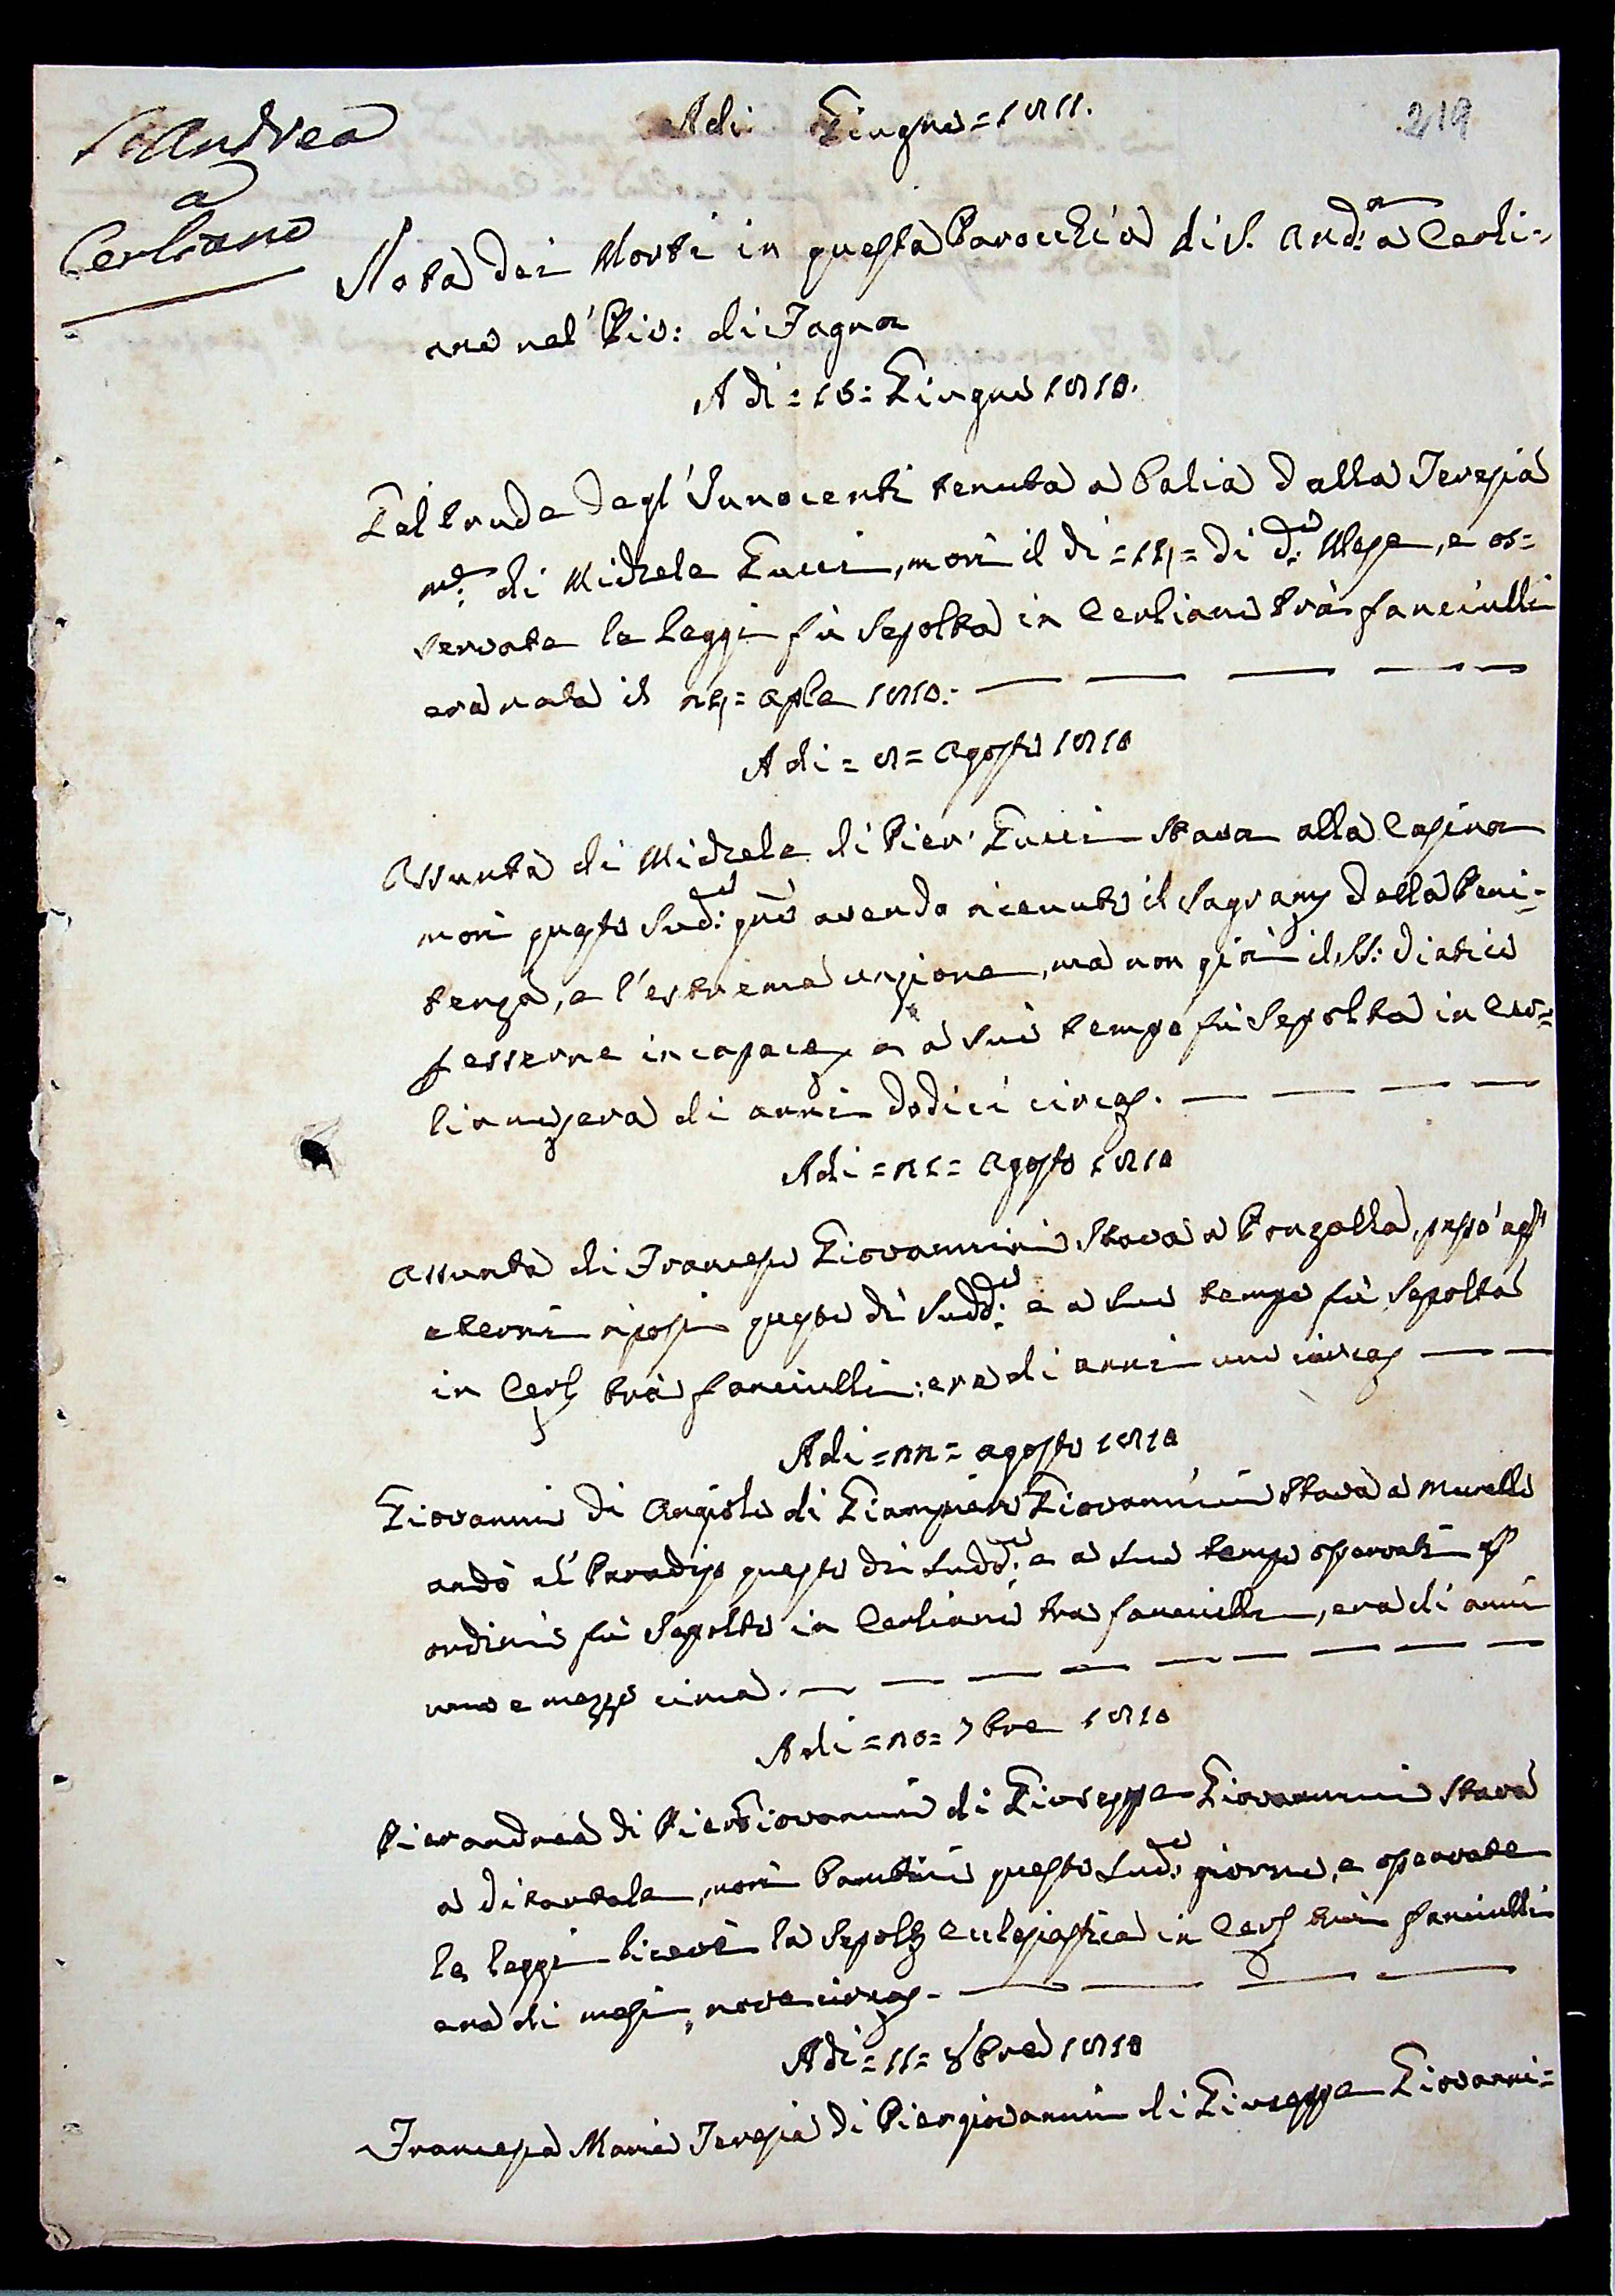 S. Andrea
a
Cerliano
Adi Giugno = 1811.
219
Nota dei Morti in questa Parocchia di S. And:a a Cerli=
ano nel' Piv: di Fagna
A di = 16 = Giugno 1810.
Geltrude degl'Innocenti tenuta a Balia dalla Teresia
m:e di Michele Gucci, morì il di = 14 = di d:o Mese, e os=
servate le leggi fù Sepolta in Cerliano trà fanciulli
era nata il 24 = aple 1810. —
A di = 8 = agosto 1810
Assunta di Michele di Pier' Gucci stava alla Casina
morì questo Sud:o gno avendo ricevuto il Sagram della Peni=
tenza, e l'estrema unzione, ma non già il SS: Viatico
p esserne incapace, e a suo tempo fù Sepolta in Cer=
liano, era di anni dodici circa. —
A di = 21 = agosto 1810
Assunta di Francesco Giovannini Stava a Ponzalla, passò agl'
eterni riposi questo dì Sudd:o e a suo tempo fù Sepolta
in Cerl trà fanciulli: era di anni uno circa —
A di = 22 = agosto 1810
Giovanni di Angiolo di Giampiero Giovannini stava a Murello
andò al' Paradiso questo di sudd:o e a suo tempo osservati gl'
ordini fù Sepolto in Cerliano tra fanciulli, era di anni
uno e mezzo circa. —
A di = 20 = 7bre 1810
Pierandrea di PierGiovanni di Giuseppe Giovannini stava
a Ditantole, morì bambino questo sud:o giorno, e osservate
le leggi ricevè la Sepolt Eclesiastica in Cerl trà fanciulli
era di mesi, nove circa. —
A di = 11 = 8bre 1810
Francesca Maria Teresia di Piergiovanni di Giuseppe Giovanni=